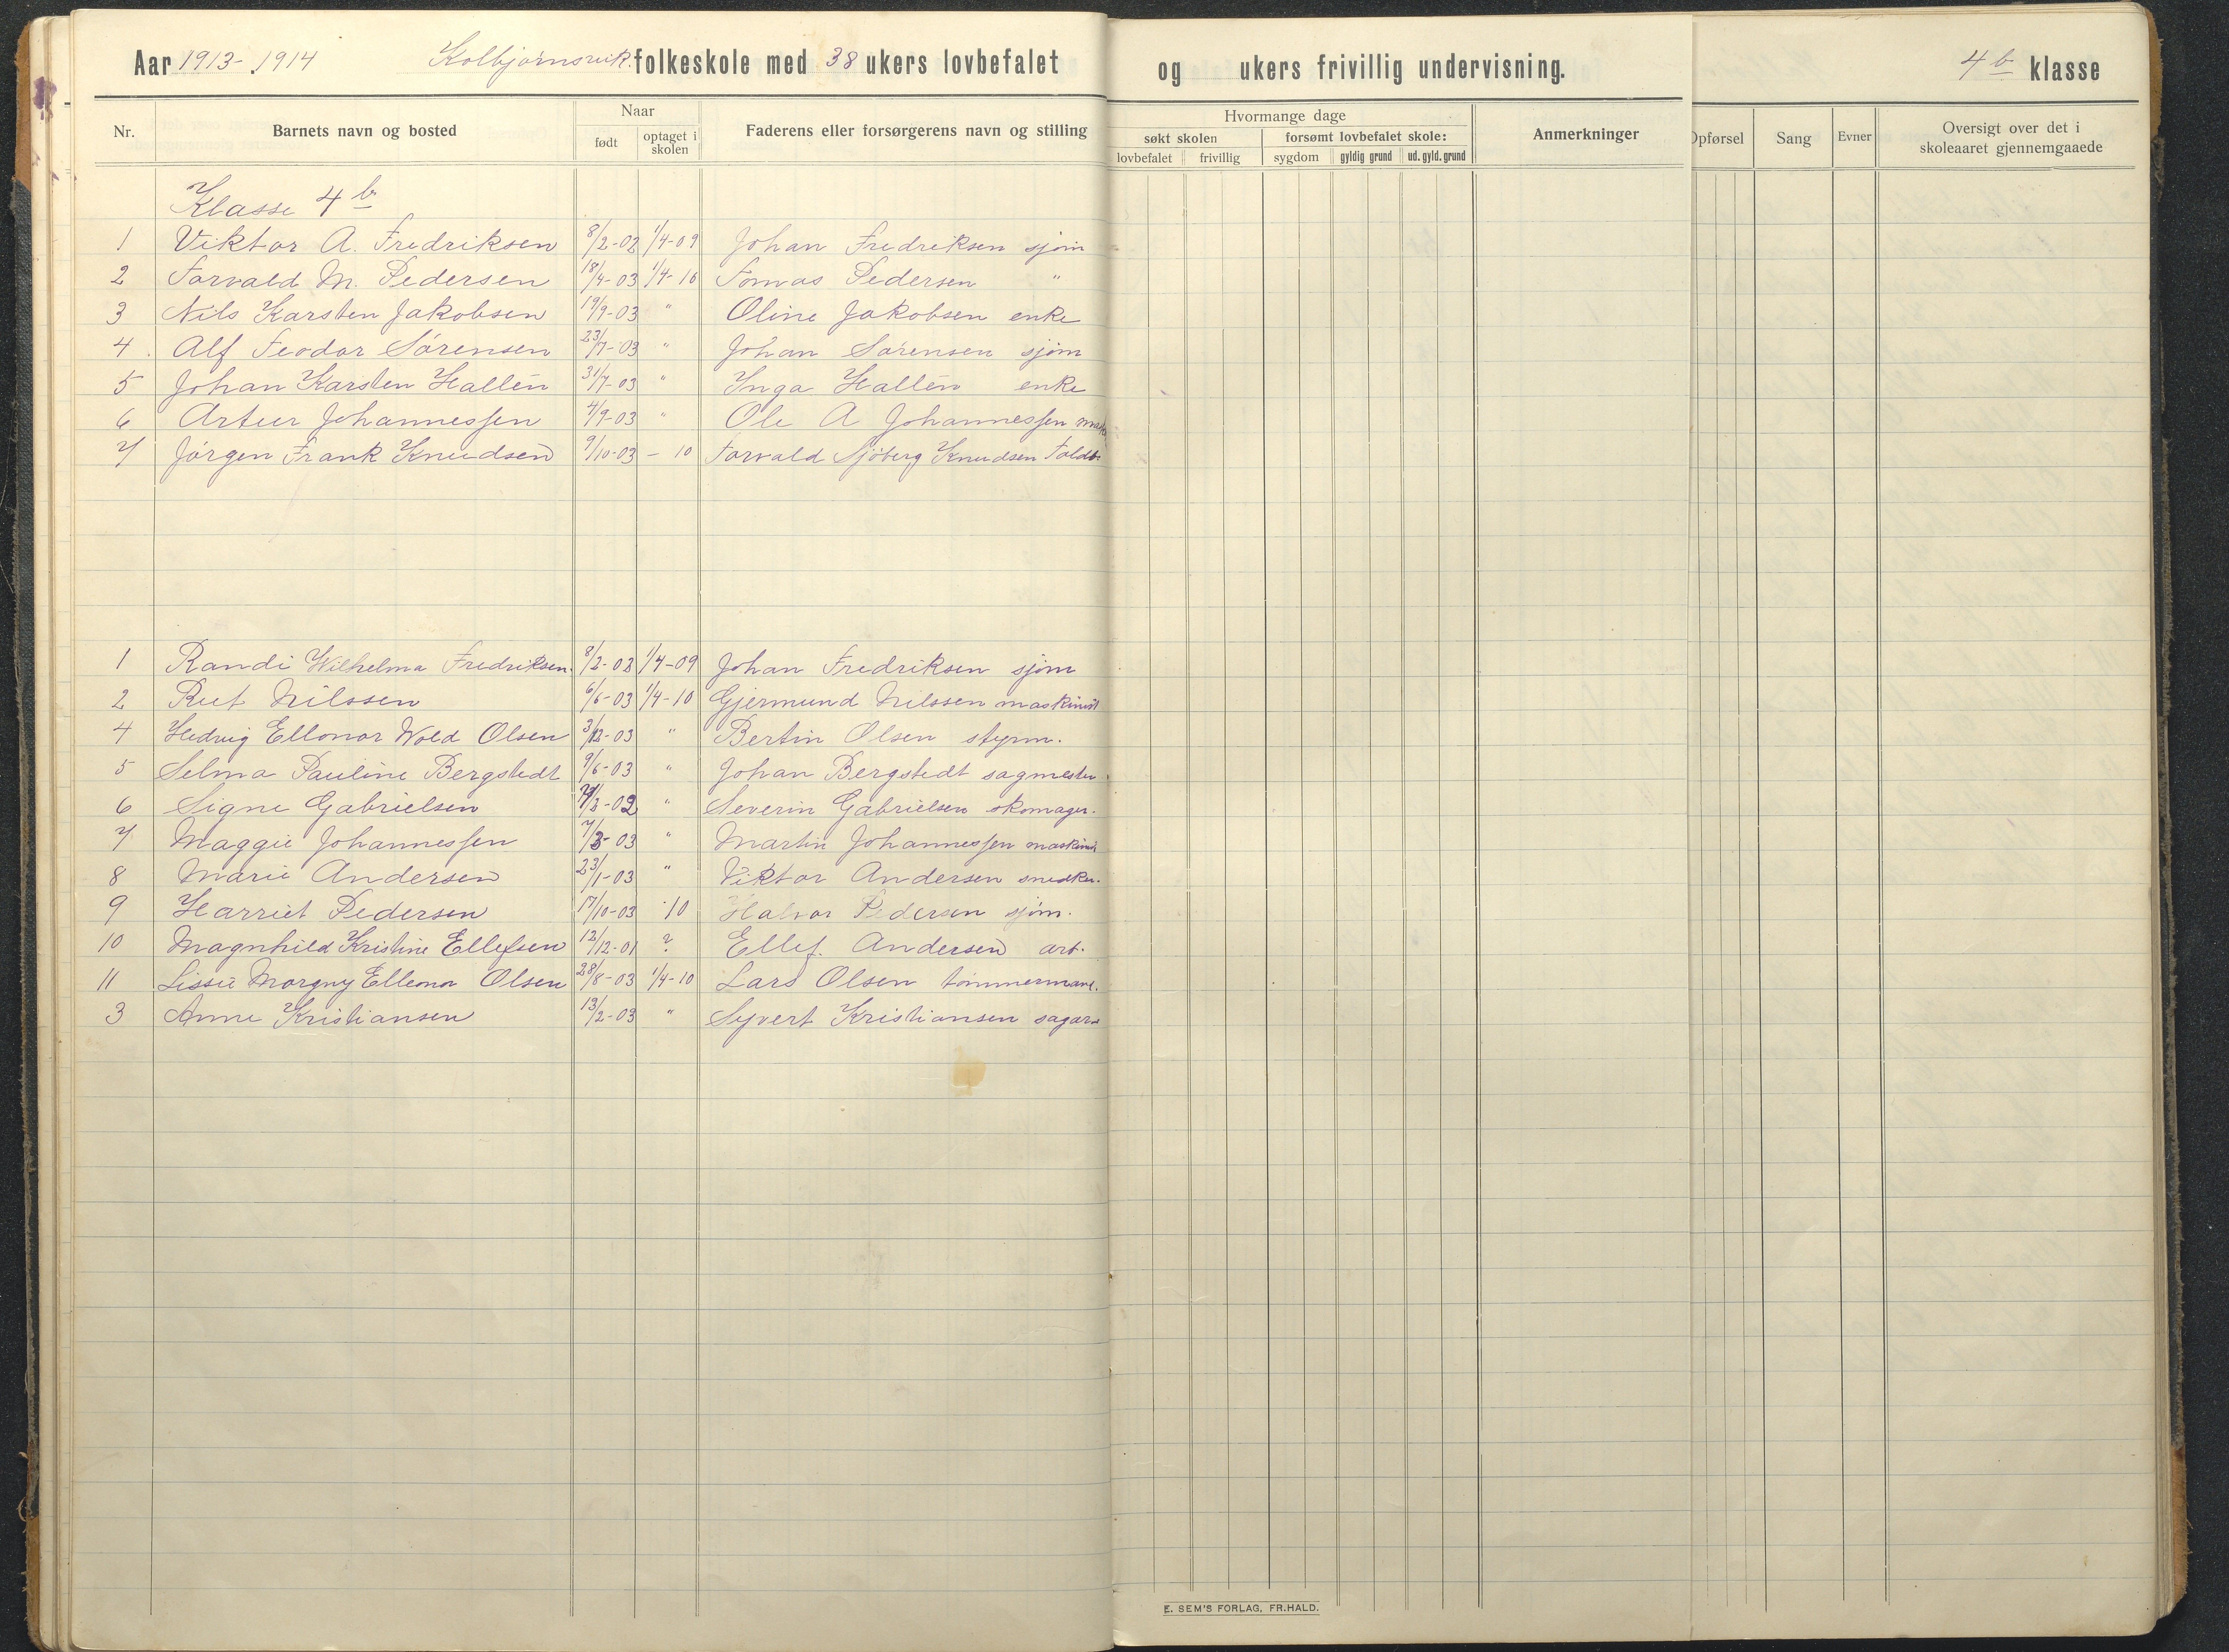 Aar 1913-1914 Kolbjørnsvik folkeskole med 38 ukers lovbefalet og ukers frivillig undervisning. 4b klasse
Nr. Barnets navn og bosted Naar Faderens eller forsørgerens navn og stilling Hvormange dage Anmerkninger Opførsel Sang Evner Oversigt over det i skoleaaret gjennemgaaede
født optaget i skolen søkt skolen forsømt lovbefalet skole:
lovbefalet frivillig sygdom gyldig grund ud. gyld. grund
Klasse 4b
1 Viktor A. Fredriksen 8/2-02 1/4-09 Johan Fredriksen sjøm
2 Torvald M. Pedersen 18/4-03 1/4-10 Tomas Pedersen "
3 Nils Karsten Jakobsen 19/9-03 " Oline Jakobsen enke
4 Alf Teodor Sørensen 23/7-03 " Johan Sørensen sjøm
5 Johan Karsten Hallén 31/7-03 " Inga Hallén enke
6 Artur Johannessen 4/9-03 " Ole A Johannessen
7 Jørgen Frank Knudsen 9/10-03 - 10 Torvald Sjöberg Knudsen Toldb.
1 Randi Wilhelma Fredriksen. 8/2-02 1/4-09 Johan Fredriksen sjøm
2 Rut Nilssen 6/6-03 1/4-10 Gjermund Nilssen maskinist
4 Hedvig Ellonor Wold Olsen 3/12-03 " Bertin Olsen styrm.
5 Selma Pauline Bergstedt 9/6-03 " Johan Bergstedt sagmester
6 Signe Gabrielsen " Severin Gabrielsen skomager.
7 Maggie Johannessen 7/3-03 " Martin Johannessen maskinist
8 Marie Andersen 23/1-03 " Viktor Andersen snedker.
9 Harriet Pedersen 17/10-03 10 Halvor Pedersen sjøm.
10 Magnhild Kristine Ellefsen 12/12-01 ? Ellef. Andersen arb.
11 Lissie Morgny Elleonor Olsen 28/8-03 1/4-10 Lars Olsen tømmermand.
3 Anne Kristiansen 13/2-03 " Syvert Kristiansen sagarb
E. SEM'S FORLAG, FR.HALD.